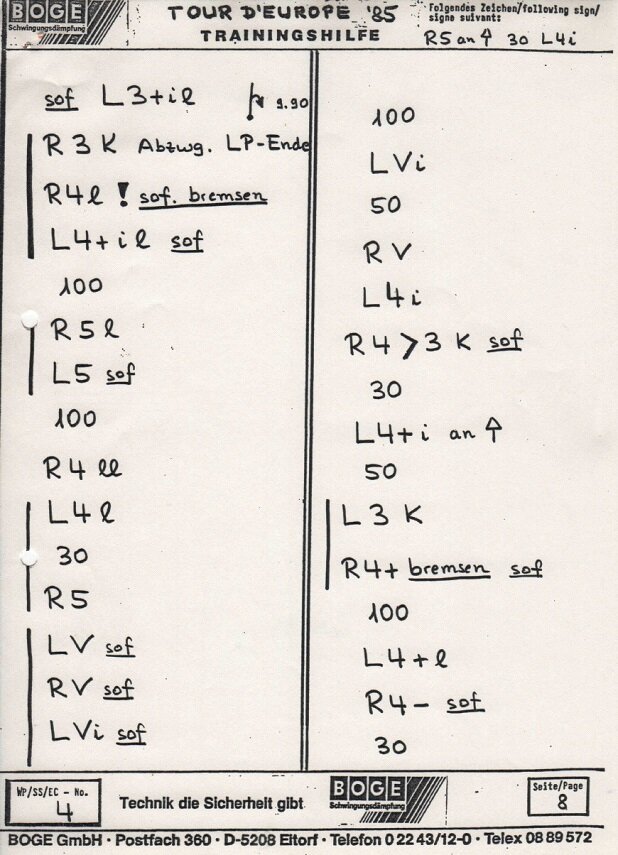 BOGE
Schwingungsdämpfung
TOUR D'EUROPE '85
TRAININGSHILFE
Folgendes Zeichen/following sign/
signe suivant:
R5 an ↑ 30 L4i
sof L3+il 9.90
R3 K Abzwg. LP-Ende
R4l ! sof. bremsen
L4+il sof
100
R5l
L5 sof
100
R4 ll
L4l
30
R5
LV sof
RV sof
LVi sof
100
LVi
50
RV
L4i
R4>3 K sof
30
L4+i an ↑
50
L3 K
R4+ bremsen sof
100
L4+l
R4- sof
30
WP/SS/EC - No.
4
Technik die Sicherheit gibt
BOGE
Schwingungsdämpfung
Seite/Page
8
BOGE GmbH · Postfach 360 · D-5208 Eitorf · Telefon 0 22 43/12-0 · Telex 08 89 572